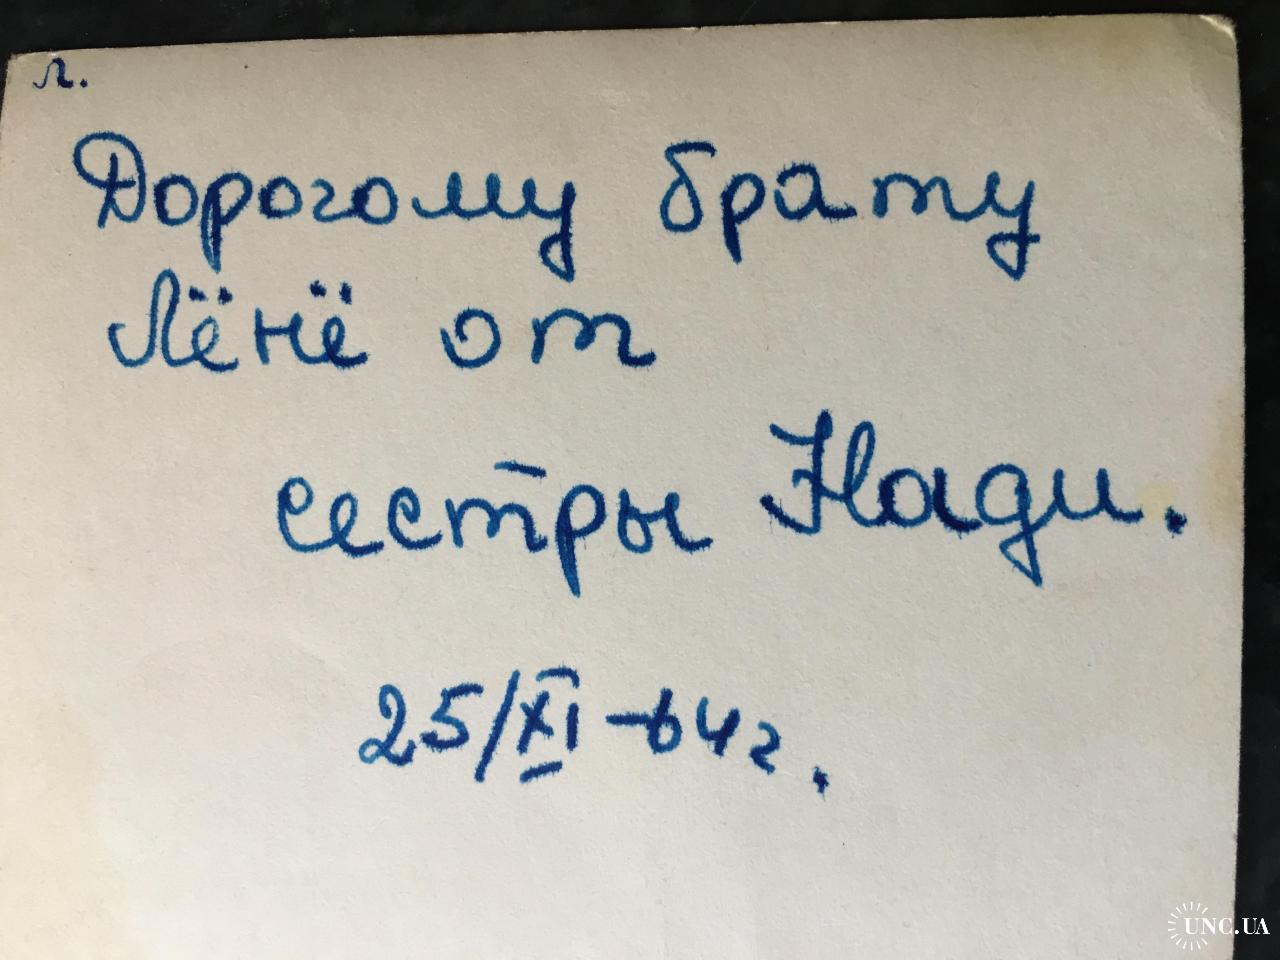 л.
Дорогому брату
Лёнё от
сестры Нади.
25/XI-64г.
UNC.UA